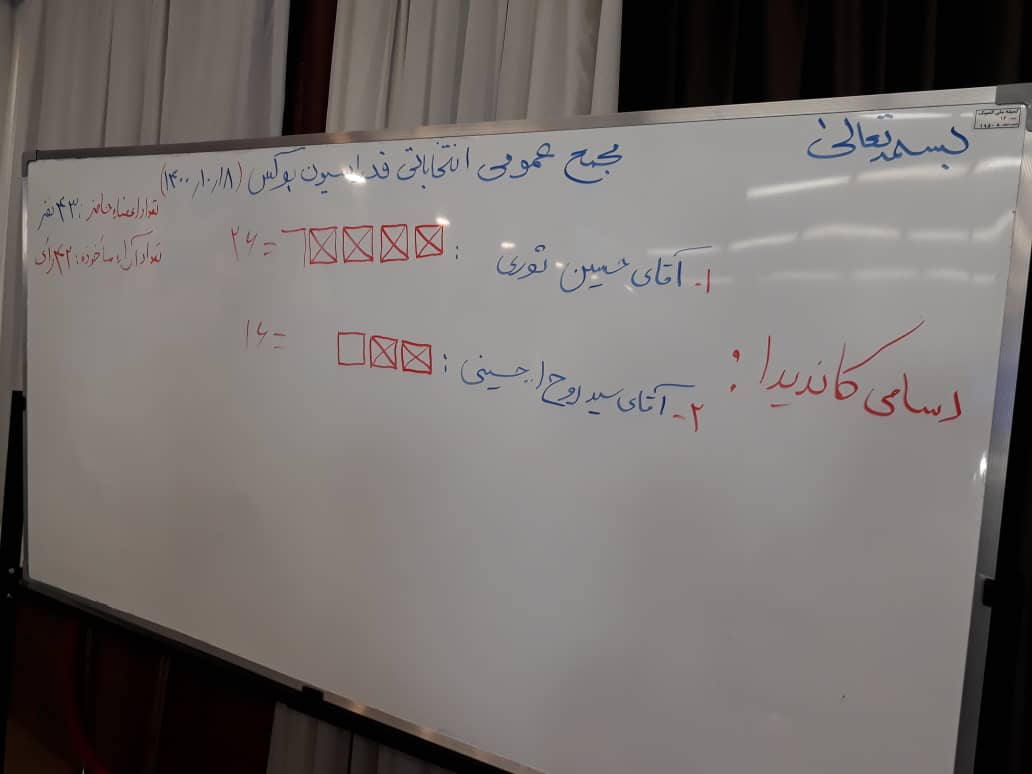 بسمه تعالی
مجمع عمومی انتخاباتی فدراسیون بوکس (۱۴۰۰/۱۰/۱۸)
تعداد اعضاء حاضر: ۴۳ نفر
تعداد آراء مأخوذه: ۴۲ رأی
اسامی کاندیدا:
۱- آقای حسین ثوری : = ۲۶
۲- آقای سید روح ا.. حسینی : = ۱۶